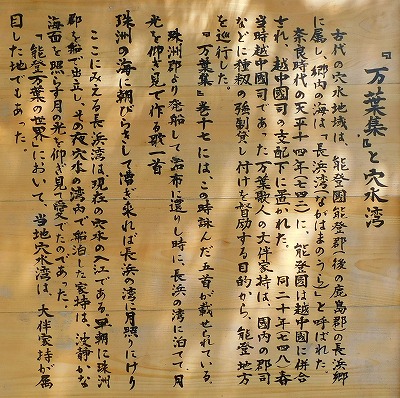 『万葉集』と穴水湾
古代の穴水地域は、能登國能登郡後の鹿島郡の長浜郷
に属し、郷内の海は、「長浜湾(ながはまのうら)」と呼ばれた。
奈良時代の天平十四年(七四二)に、能登國は越中國に併合
され、越中國司の支配下に置かれた。同二十年(七四八)春
当時越中國司であった万葉歌人の大伴家持は、國内の郡司
などに種籾の強制貸し付けを督励する目的から、能登地方
を巡行した。
『万葉集』巻十七には、この時詠んだ五首が載せられている。
珠洲郡より発船して治布に還りし時に、長浜の湾に泊てて月
光を仰ぎ見て作る歌一首
珠洲の海に朝びらきして漕ぎ来れば長浜の湾に月照りにけり
ここにみえる長浜湾は現在の穴水の入江である。早朝に珠洲
郡を船で出立し、その夜穴水湾内で船泊した家持は、波静かな
海面を照らす月の光を仰ぎ見て愛でたのであった。
「能登万葉の世界」において、当地穴水湾は、大伴家持が属
目した地でもあった。